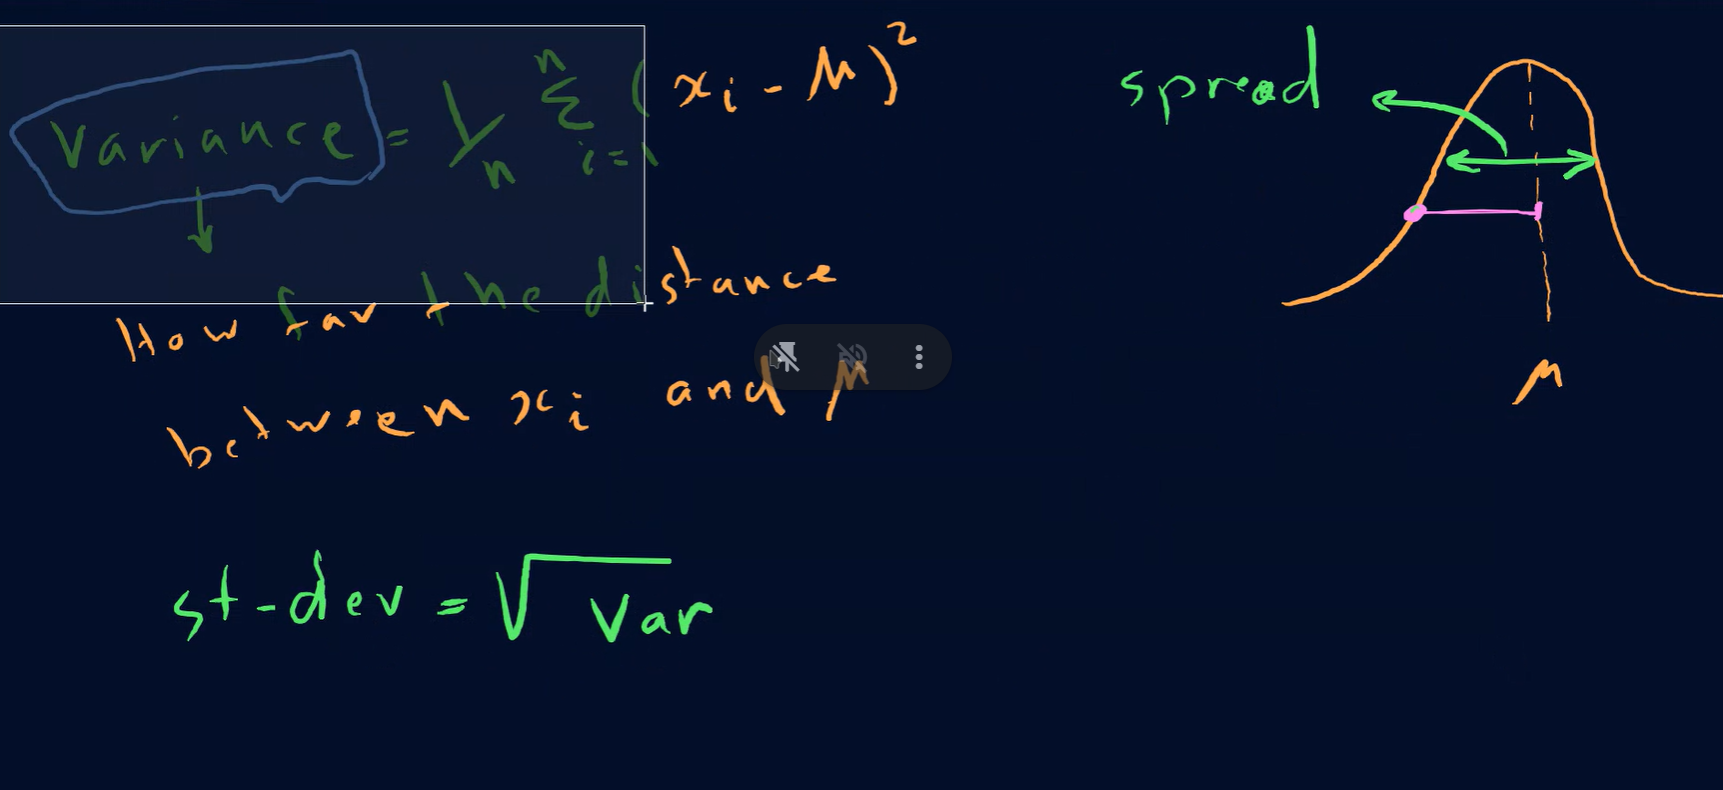 Variance = 1/n Σ n i=1 (xi - μ)²
How far the distance
between xi and μ
st-dev = √var
spread
μ